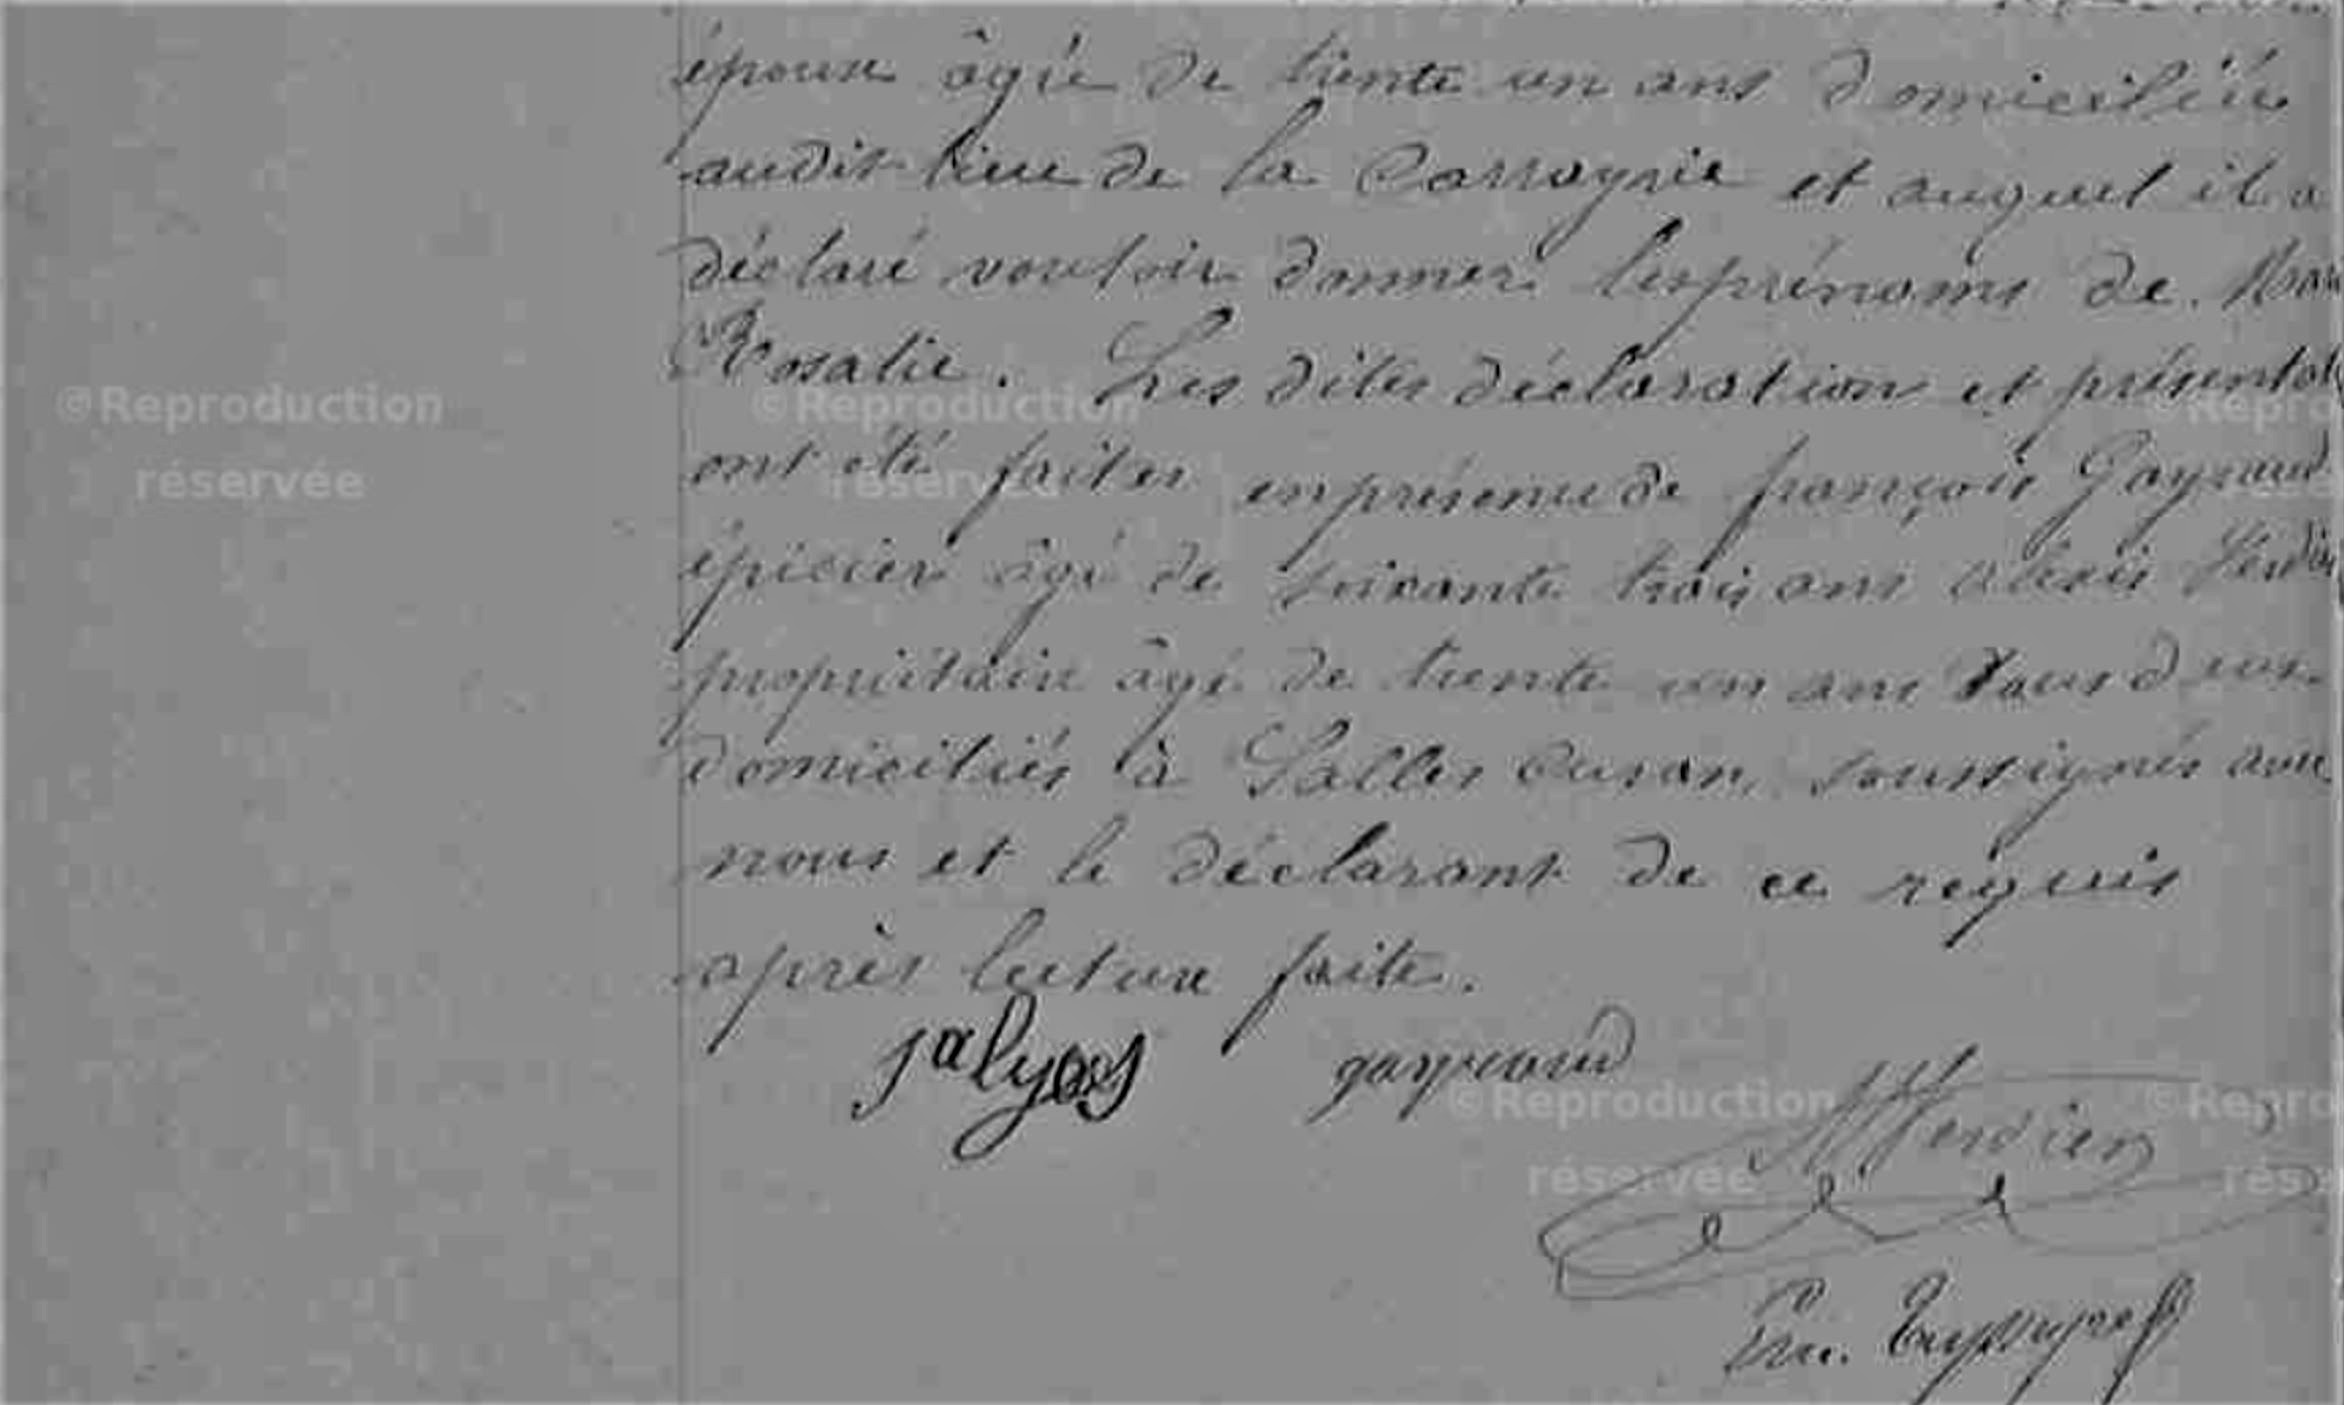 épouse âgée de trente un ans domiciliée
audit lieu de la Carrayrie et auquel il a
déclaré vouloir donner les prénoms de
Rosalie. Les dites déclaration et présentat
ont été faites en présence de françois Gayraud
épicier âgé de soixante trois ans alexis
propriétaire âgé de trente un ans tous deux
domiciliés à Salles Curan, soussignés avec
nous et le déclarant de ce requis
après lecture faite.
jalyes gayraud
Verdier
©Reproduction réservée
©Reproduction réservée
©Reproduction réservée